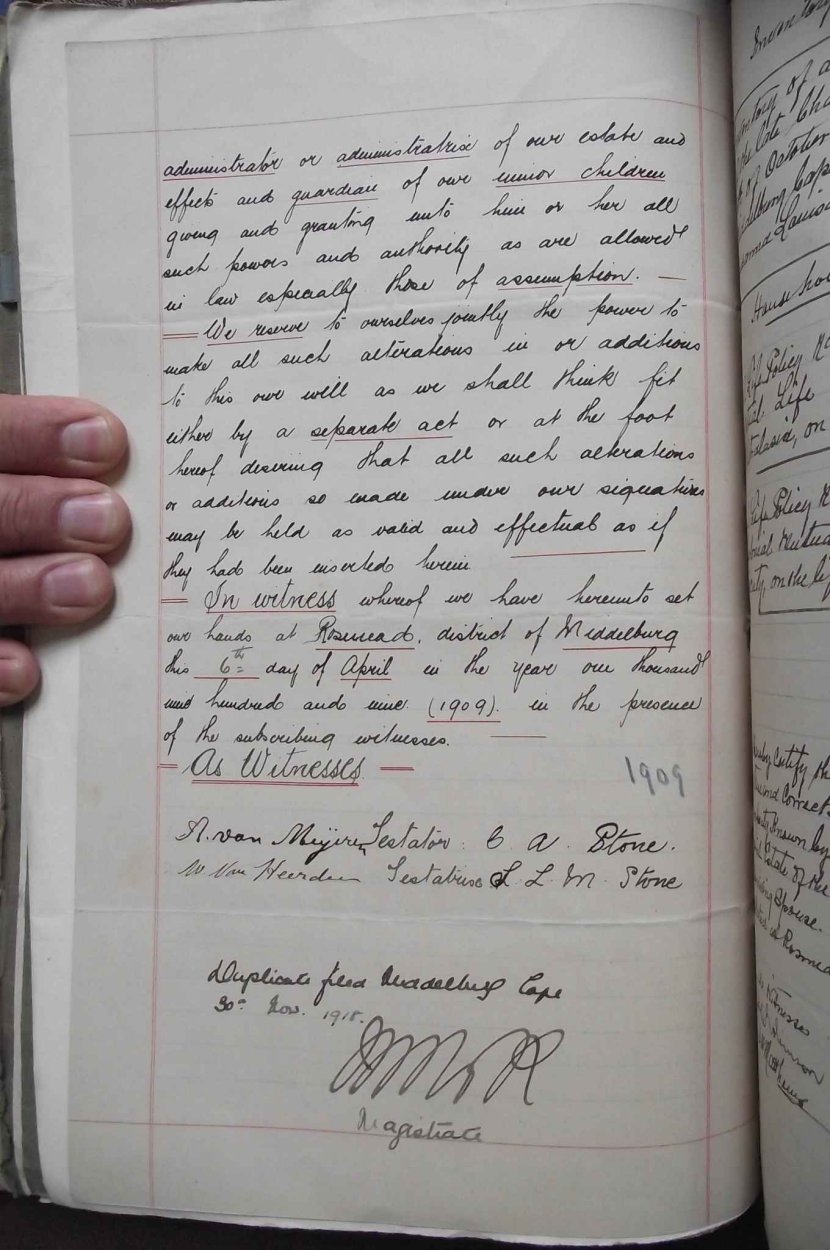 administrator or administratrix of our estate and
effects and guardian of our minor children
giving and granting unto him or her all
such powers and authority as are allowed
in law especially those of assumption. —
We reserve to ourselves jointly the power to
make all such alterations in or additions
to this our will as we shall think fit
either by a separate act or at the foot
hereof desiring that all such alterations
or additions so made under our signatures
may be held as valid and effectual as if
they had been inserted herein
In witness whereof we have hereunto set
our hands at Rosmead, district of Middelburg
this 6th day of April in the year one thousand
nine hundred and nine (1909). in the presence
of the subscribing witnesses. —
As Witnesses —
1909
A. van Testator: C A Stone.
W Van Heerden Testatrix L L M Stone
Duplicate filed Middelburg Cape
30th Nov. 1918.
Magistrate
Inventory
Inventory of a
the late Cha
October
Middelburg Cape
named Louisa
House hol
Life Policy No
Life
on
Life Policy N
Mutual
on the li
Certify th
and Correct
Known by
Estate of the
Spouse.
at Rosmead
Witnesses